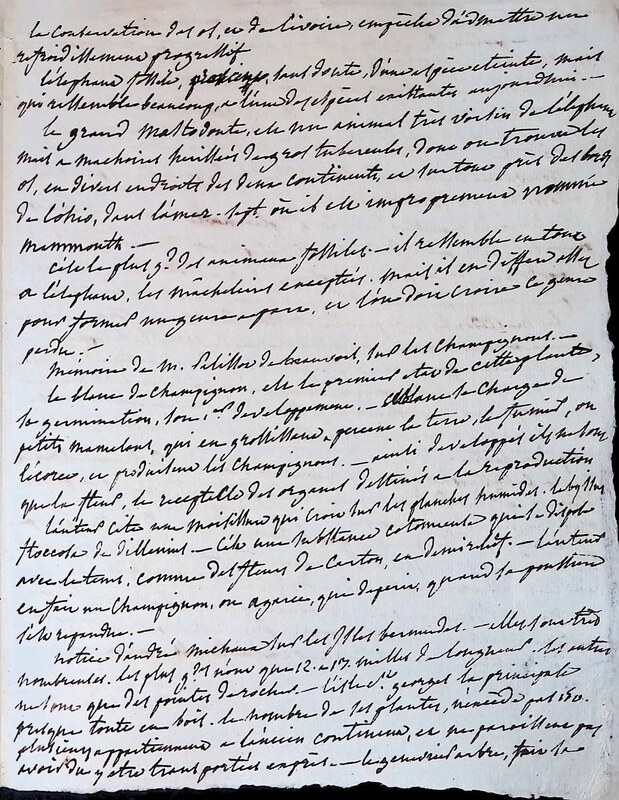 la conservation des os, et de l'ivoire, empêche d'admettre un
refroidissement progressif
l'elephant fossile, sans doute, d'une espèce eteinte, mais
qui ressemble beaucoup, a l'une des espèces existantes aujourdhui. —
le grand mastodonte, est un animal très voisin de l'éléphant
mais a machoires herissés de gros tubercules, dont on trouve les
os, en divers endroits des deux continents, et surtout près des bords
de l'ohio, dans l'amer. sept. où il est improprement nommé
mammouth —
c'est le plus gd des animaux fossiles. — il ressemble en tout
a l'elephant, les mâcheliers exceptés. mais il en differe assez
pour former un genre a part, et l'on doit croire ce genre
perdu. —
Memoire de m. Palissot de beauvois, sur les champignons. —
le blanc de champignon, est le premier etat de cette plante,
sa germination, son 1er developpement. — se charge de
petits mamelons, qui en grossissant, percent la terre, le fumier, ou
l'écorce, et produisent les champignons. — ainsi developpés ils ne sont
que la fleur, le receptacle des organes destinés a la reproduction
l'auteur cite une moisissure qui croit sur les planches humides. le byssus
floccosa de dillenius. — c'est une substance cotoneuse qui se dispose
avec le tems, comme des fleurs de carton, en demi relief. — l'auteur
en fait un champignon, ou agaric, qui deperit, quand sa poussiere
s'est repandue. —
notice d'andré michaux sur les isles bermudes. — elles sont très
nombreuses. les plus gdes n'ont que 12. a 15. milles de longueur. les autres
ne sont que des pointes de rocher. — l'isle st georges la principale
presque toute en bois. le nombre de ses plantes, n'excede pas 150.
plusieurs appartiennent a l'ancien continent, et ne paroissent pas
avoir du y etre transportées exprès. — le genevrier arbre, fait la